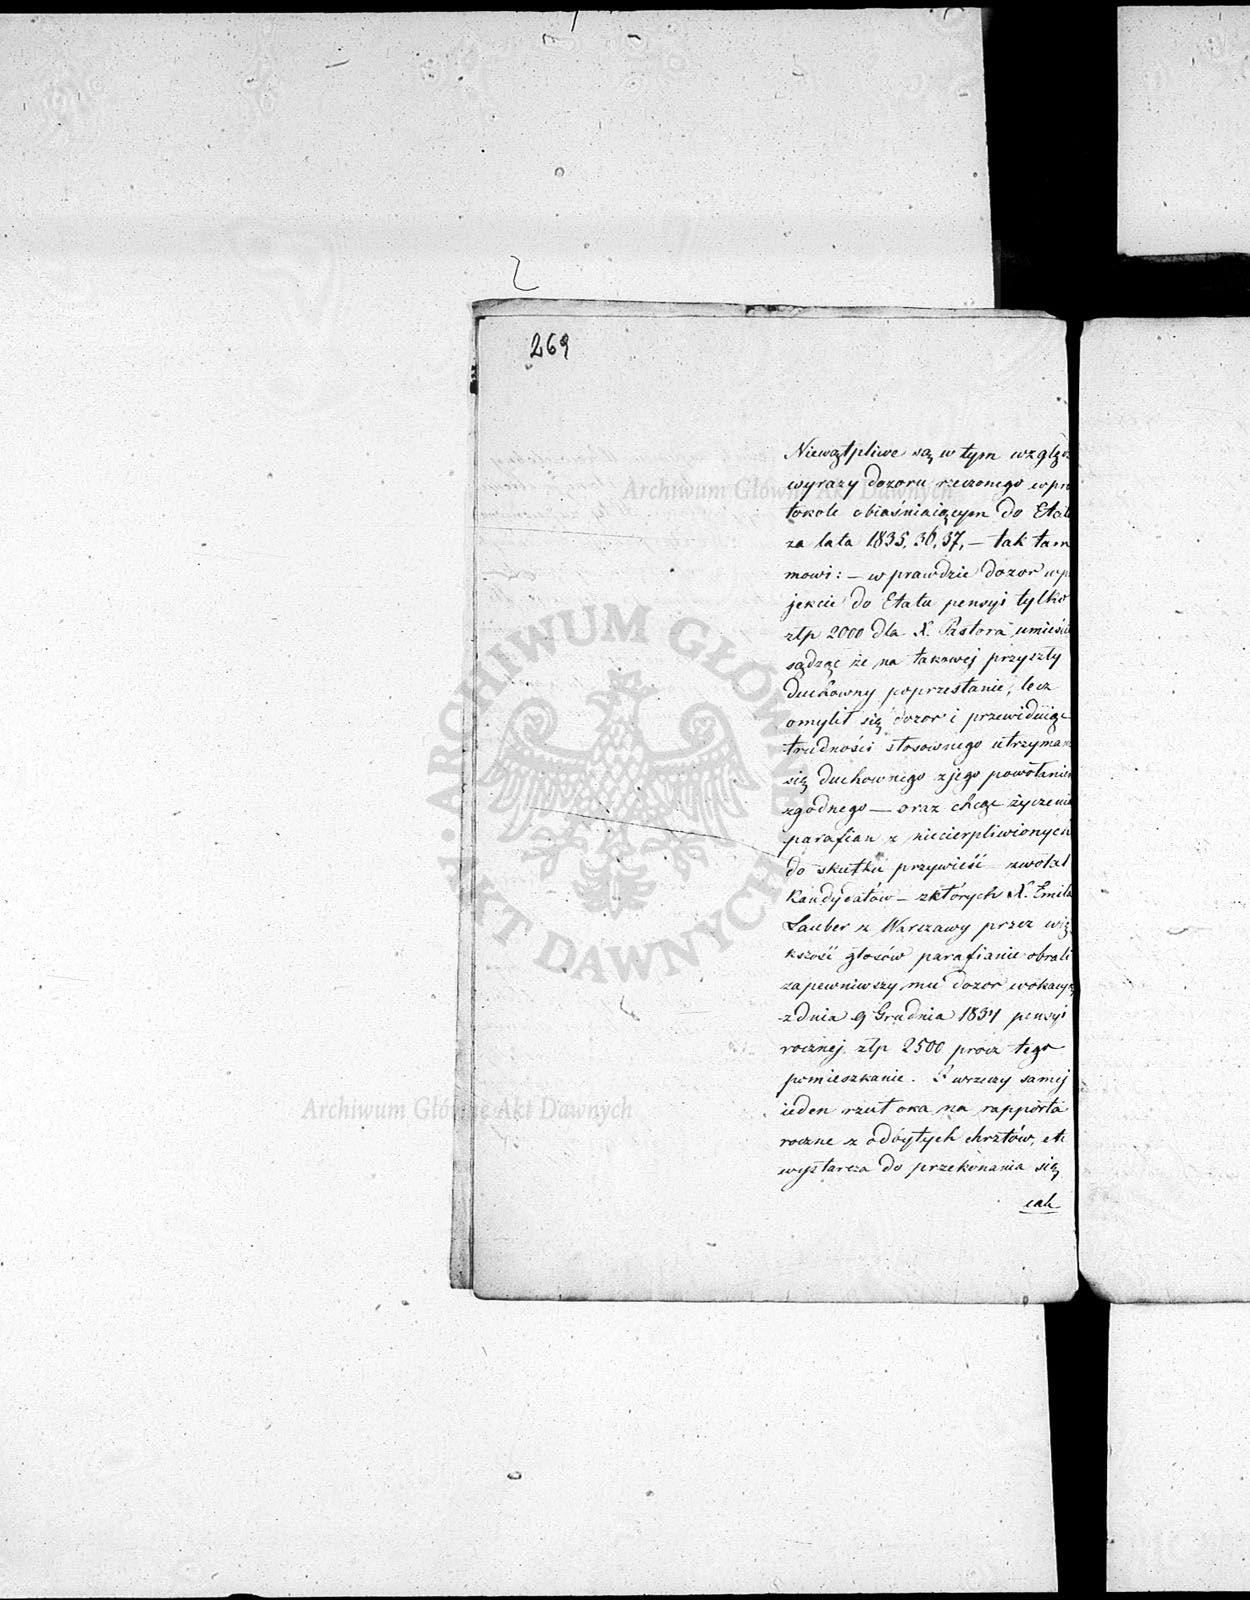 269
Niewątpliwe są w tym wzglę
wyrazy dozoru rzeczonego w pro
tokole obiaśniaiącym do Etatu
za lata 1835, 36, 37, – tak tam
mowi: – w prawdzie dozor w pr
jekcie do Etatu pensyi tylko
złp 2000 dla X. Pastora umieści
sądząc że na takowej przyszły
duchowny poprzestanie, lecz
omylił się dozor i przewiduiąc
trudności stosownego utrzyman
się duchownego z jego powołaniem
zgodnego – oraz chcąc życzenie
parafian z niecierpliwionych
do skutku przywieść zwołał
kandydatów – z których X. Emila
Lauber z Warszawy przez wię
kszość głosów parafianie obrali
zapewniwszy mu dozor wokacyą
z dnia 9 Grudnia 1834 pensyi
rocznej złp 2500 procz tego
pomieszkanie. I wrzeczy samej
ieden rzut oka na rapporta
roczne z odbytych chrztów, etc
wystarcza do przekonania się
iak
Archiwum Główne Akt Dawnych
Archiwum Główne Akt Dawnych
ARCHIWUM GŁÓWNE AKT DAWNYCH